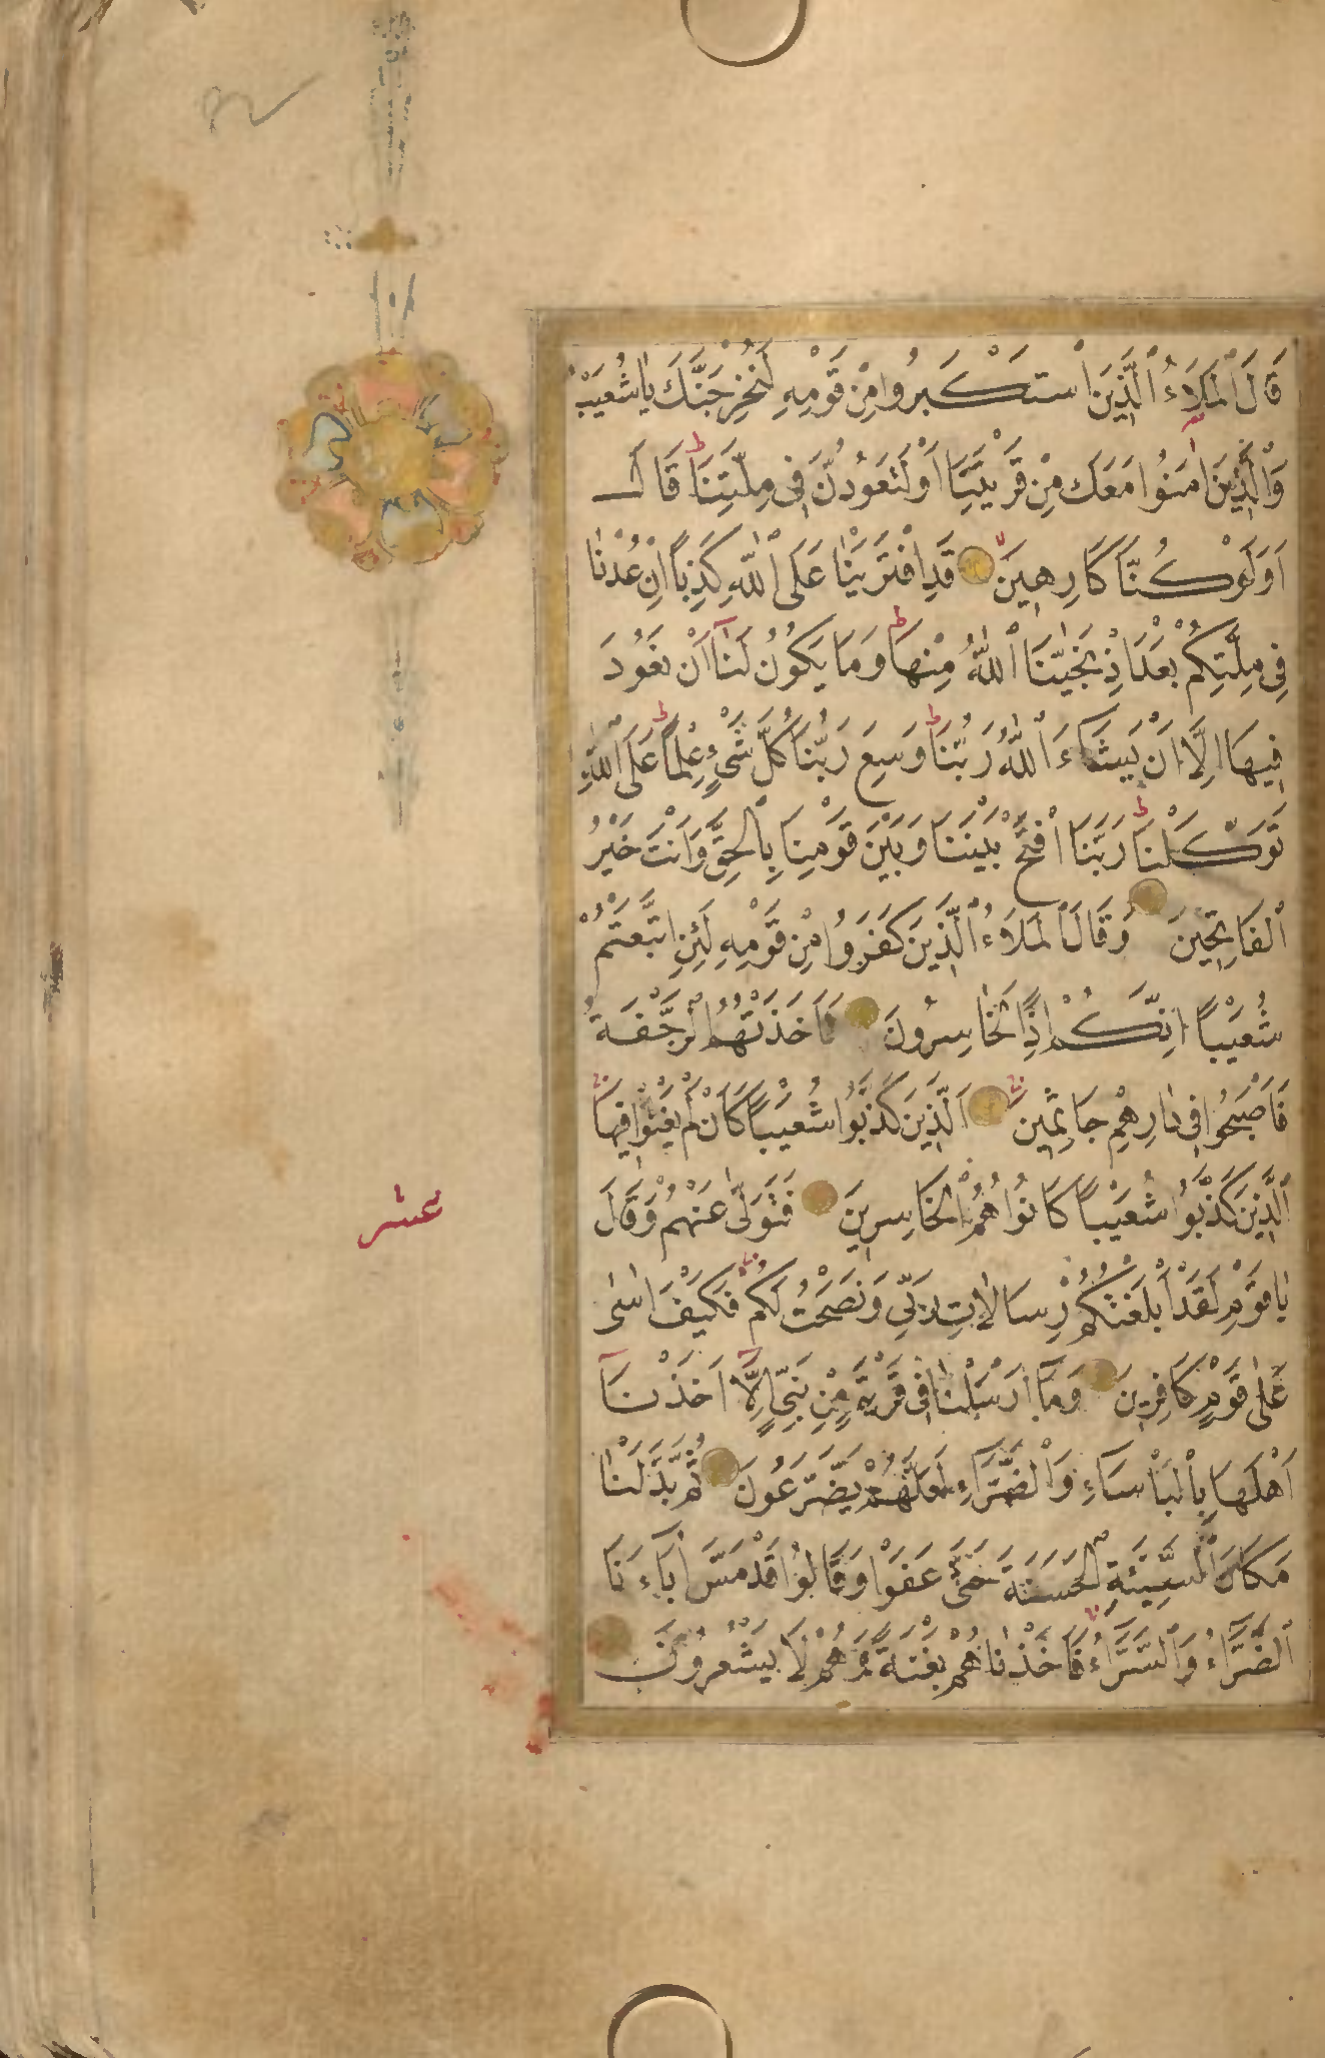 قَالَ ٱلْمَلَاُ ٱلَّذِينَ ٱسْتَكْبَرُوا مِنْ قَوْمِهِ لَنُخْرِجَنَّكَ يَا شُعَيْبُ
وَٱلَّذِينَ اٰمَنُوا مَعَكَ مِنْ قَرْيَتِنَا اَوْ لَتَعُودُنَّ فِى مِلَّتِنَا ط قَالَ
اَوَلَوْ كُنَّا كَارِهِينَ قَدِ افْتَرَيْنَا عَلَى ٱللّٰهِ كَذِبًا اِنْ عُدْنَا
فِى مِلَّتِكُمْ بَعْدَ اِذْ نَجّٰينَا ٱللّٰهُ مِنْهَا ط وَمَا يَكُونُ لَنَا اَنْ نَعُودَ
فِيهَا اِلَّا اَنْ يَشَاءَ ٱللّٰهُ رَبُّنَا ط وَسِعَ رَبُّنَا كُلَّ شَىْءٍ عِلْمًا ط عَلَى ٱللّٰهِ
تَوَكَّلْنَا ط رَبَّنَا ٱفْتَحْ بَيْنَنَا وَبَيْنَ قَوْمِنَا بِٱلْحَقِّ وَاَنْتَ خَيْرُ
ٱلْفَاتِحِينَ وَقَالَ ٱلْمَلَاُ ٱلَّذِينَ كَفَرُوا مِنْ قَوْمِهِ لَئِنِ اتَّبَعْتُمْ
شُعَيْبًا اِنَّكُمْ اِذًا لَخَاسِرُونَ فَاَخَذَتْهُمُ ٱلرَّجْفَةُ
فَاَصْبَحُوا فِى دَارِهِمْ جَاثِمِينَ اَلَّذِينَ كَذَّبُوا شُعَيْبًا كَاَنْ لَمْ يَغْنَوْا فِيهَا
ٱلَّذِينَ كَذَّبُوا شُعَيْبًا كَانُوا هُمُ ٱلْخَاسِرِينَ فَتَوَلّٰى عَنْهُمْ وَقَالَ
عشر
يَا قَوْمِ لَقَدْ اَبْلَغْتُكُمْ رِسَالَاتِ رَبِّى وَنَصَحْتُ لَكُمْ فَكَيْفَ اٰسٰى
عَلٰى قَوْمٍ كَافِرِينَ وَمَا اَرْسَلْنَا فِى قَرْيَةٍ مِنْ نَبِىٍّ اِلَّا اَخَذْنَا
اَهْلَهَا بِٱلْبَأْسَاءِ وَٱلضَّرَّاءِ لَعَلَّهُمْ يَضَّرَّعُونَ ثُمَّ بَدَّلْنَا
مَكَانَ ٱلسَّيِّئَةِ ٱلْحَسَنَةَ حَتّٰى عَفَوْا وَقَالُوا قَدْ مَسَّ اٰبَاءَنَا
ٱلضَّرَّاءُ وَٱلسَّرَّاءُ فَاَخَذْنَاهُمْ بَغْتَةً وَهُمْ لَا يَشْعُرُونَ